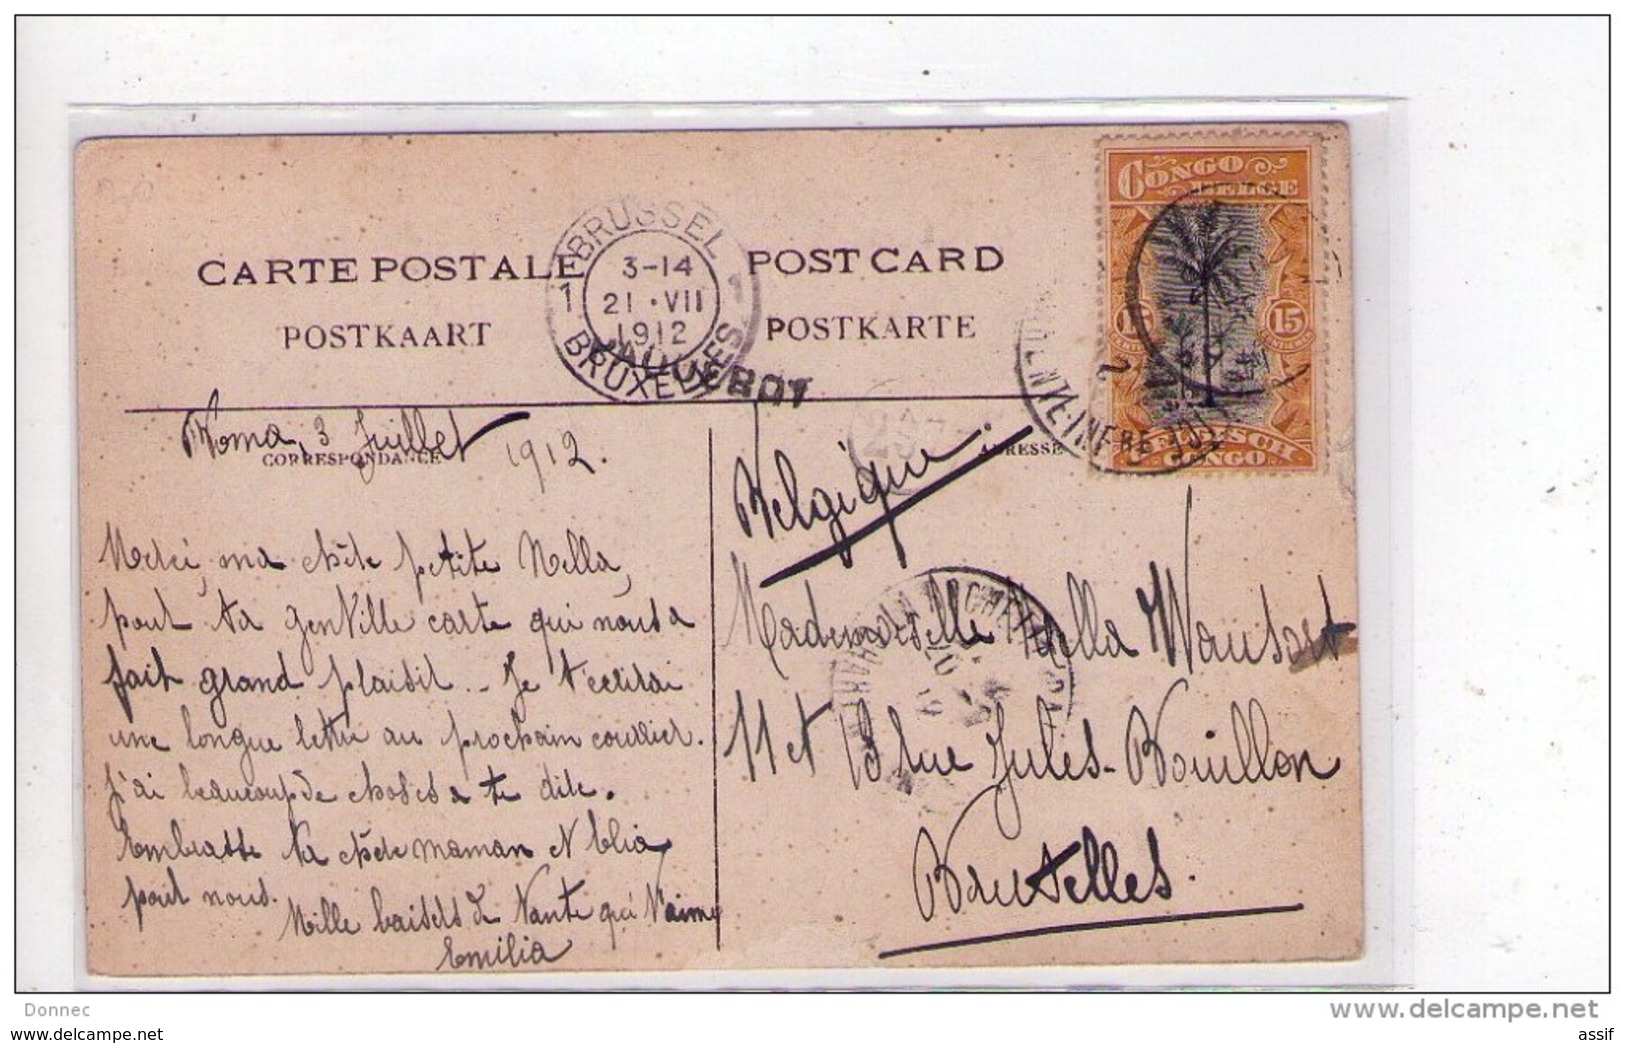 CARTE POSTALE
POSTKAART
POST CARD
POSTKARTE
1 BRUSSEL 1
3-14
21 · VII
1912
BRUXELLES
PAQUEBOT
CONGO
BELGE
15 15
BELGISCH
CONGO
CORRESPONDANCE
ADRESSE
Boma, 3 Juillet 1912.
Merci, ma chère petite Nella,
pour ta gentille carte qui nous a
fait grand plaisir. - Je t'ecrirai
une longue lettre au prochain courrier.
J'ai beaucoup de choses a te dire.
Embrasse ta chère maman et Clia
pour nous.
Mille baisers de Tante qui t'aime
Emilia
Belgique.
Mademoiselle Nella Wausort
11 et 13 rue Jules-Bouillon
Bruxelles.
Donnec
www.delcampe.net
assif